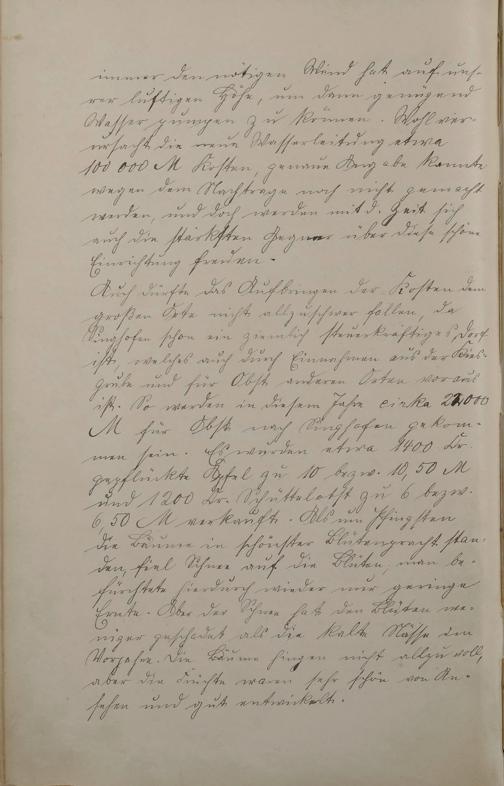 immer den nötigen Wind hat auf uns-
rer luftigen Höhe, um dann genügend
Wasser pumpen zu können. Wohl ver-
ursacht die neue Wasserleitung etwa
100 000 M Kosten, genaue Angabe konnte
wegen dem Nachtrage noch nicht gemacht
werden, und doch werden mit d. Zeit sich
auch die stärksten Gegner über diese schöne
Einrichtung freuen.
Auch dürfte das Aufbringen der Kosten dem
großen Orte nicht allzuschwer fallen, da
Singhofen schon ein ziemlich steuerkräftiges Dorf
ist, welches auch durch Einnahmen aus der Kies-
grube und für Obst anderen Orten voraus
ist. So werden in diesem Jahre cirka 21000
M für Obst nach Singhofen gekom-
men sein. Es wurden etwa 1400 Ctr.
gepflückte Äpfel zu 10 bezw. 10,50 M
und 1200 Ctr. Schüttelobst zu 6 bezw.
6,50 M verkauft. Als um Pfingsten
die Bäume in schönster Blütenpracht stan-
den, fiel Schnee auf die Blüten, man be-
fürchtete hierdurch wieder nur geringe
Ernte. Aber der Schnee hat den Blüten we-
niger geschadet als die kalte Nässe im
Vorjahre. Die Bäume hingen nicht allzu voll,
aber die Früchte waren sehr schön von An-
sehen und gut entwickelt.